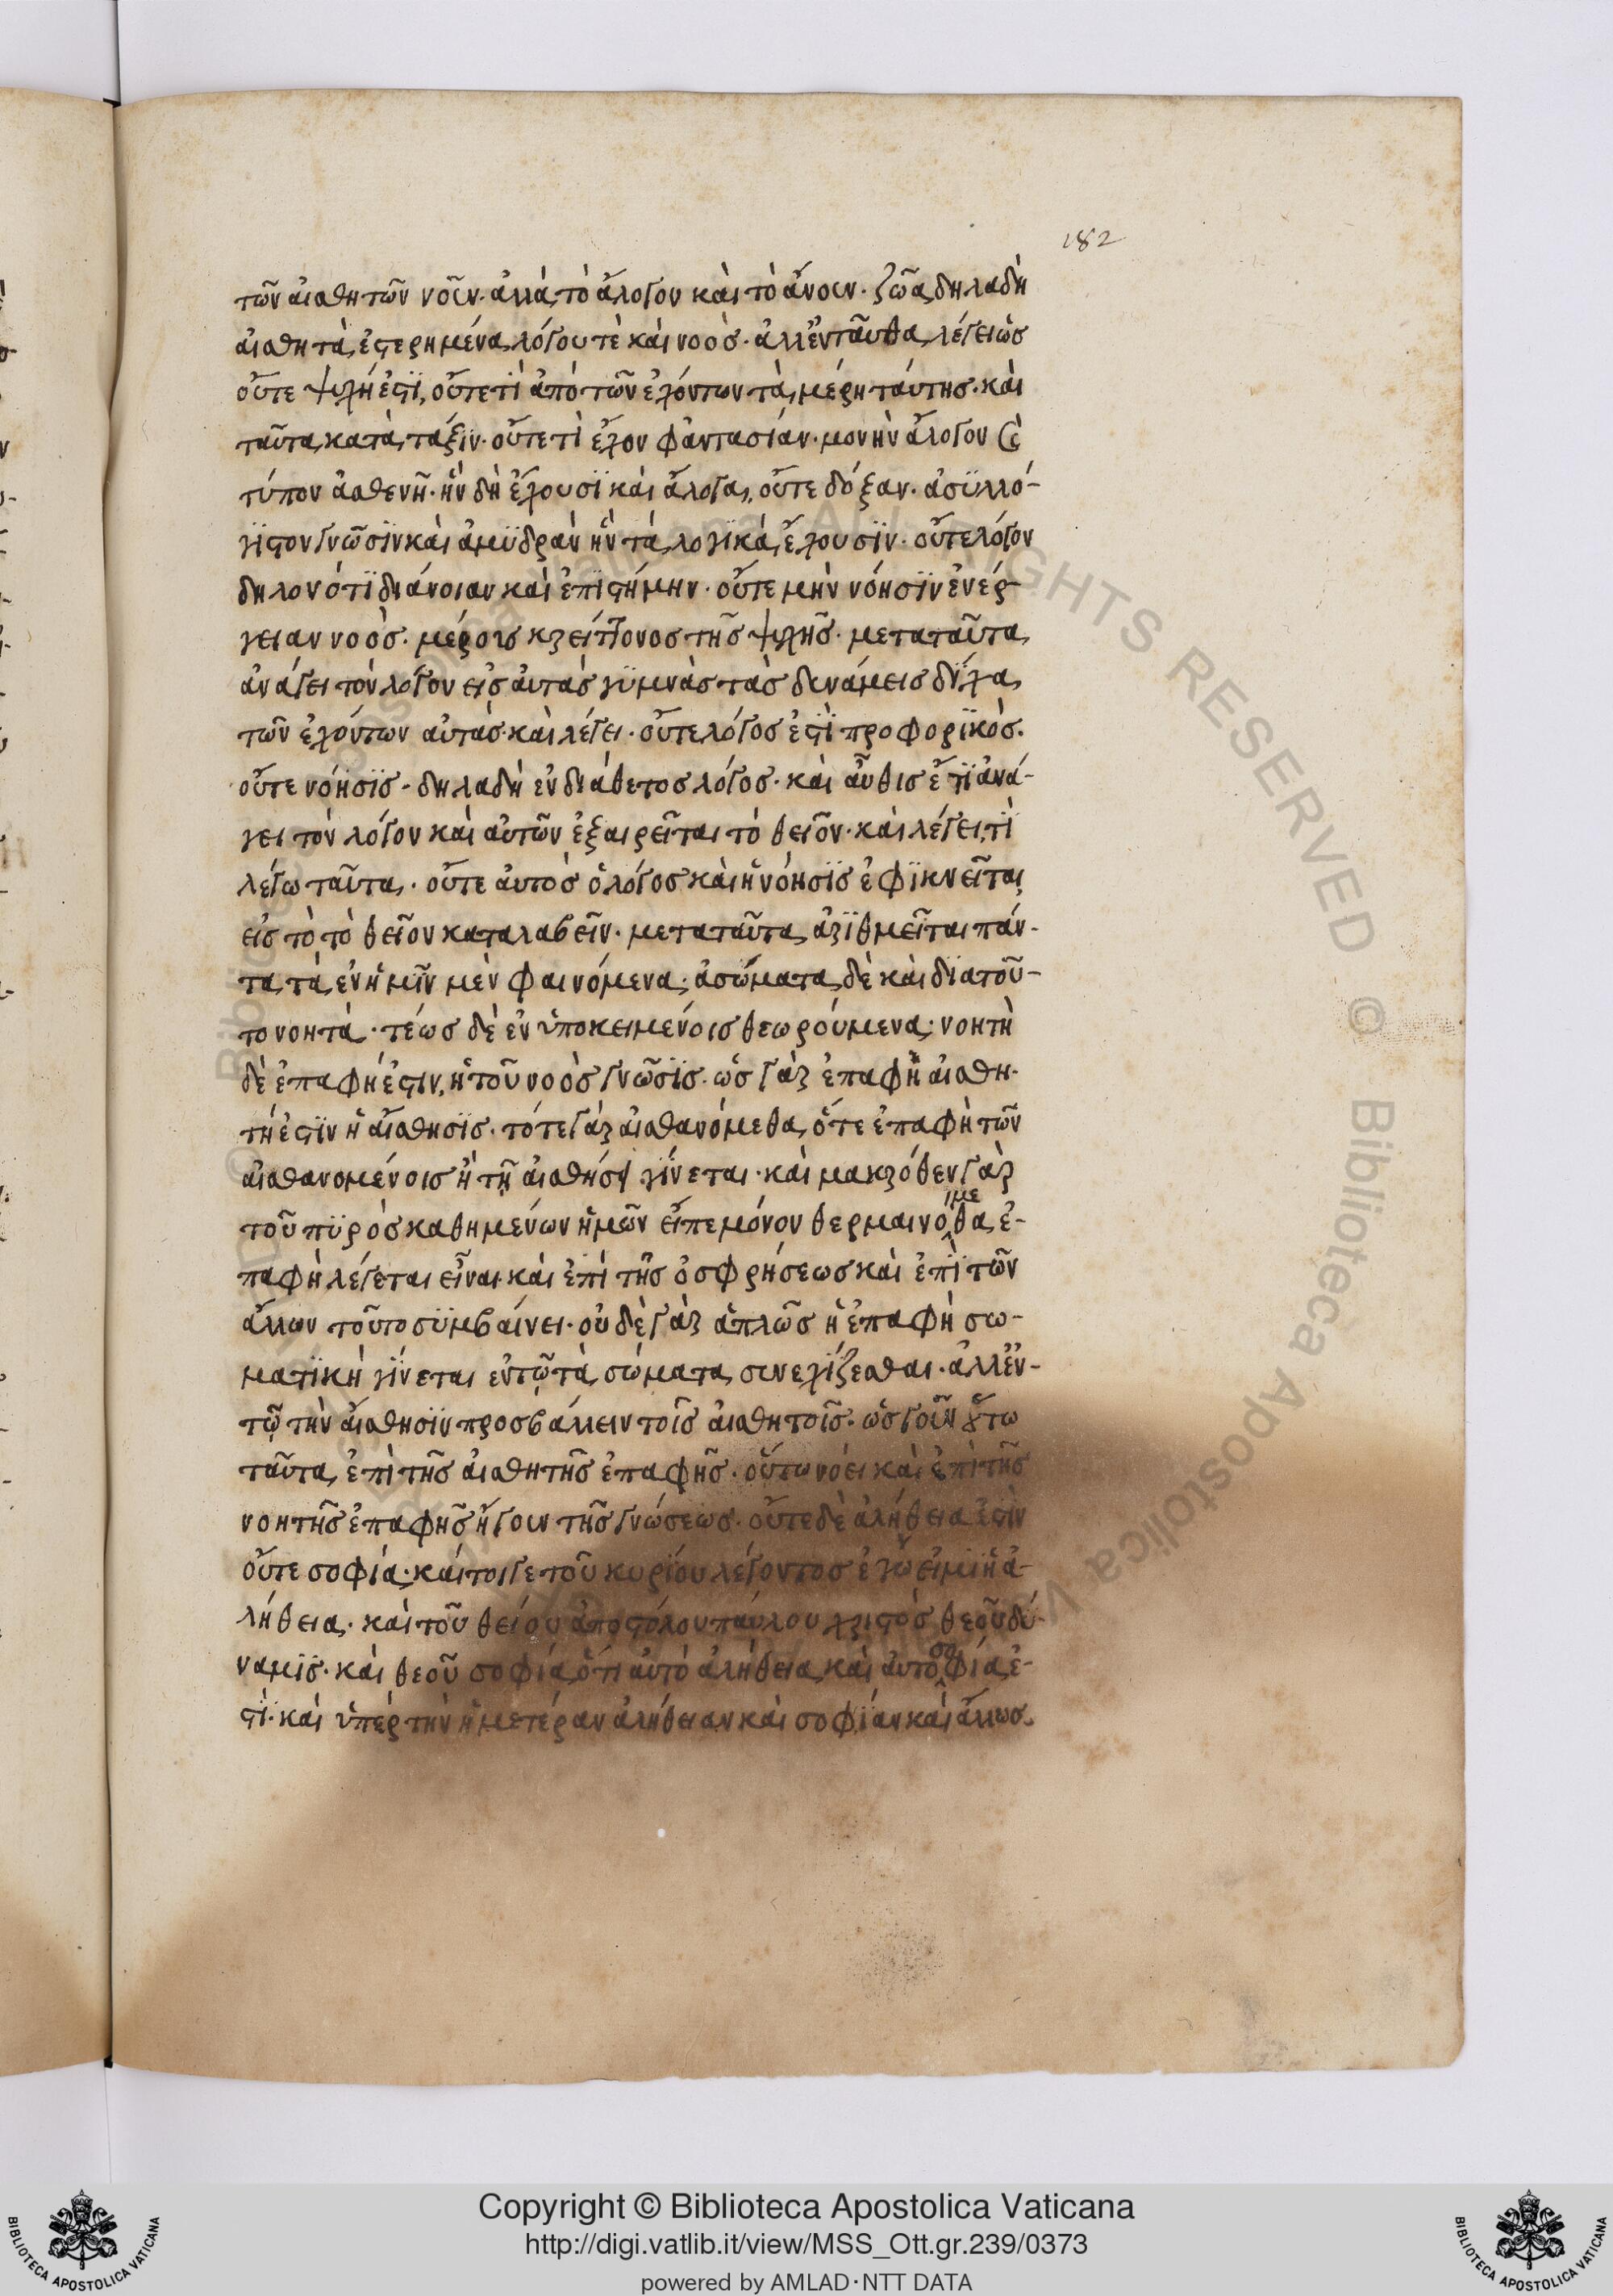 182
τῶν αἰσθητῶν νοῦν· ἀλλὰ τὸ ἄλογον καὶ τὸ ἄνουν· ζῶα δηλαδὴ
αἰσθητὰ ἐστερημένα λόγου τὲ καὶ νοὸς· ἀλλ' ἐνταῦθα λέγει ὡς
οὔτε ψυχή ἐστι, οὔτε τὶ ἀπὸ τῶν ἐχόντων τὰ μέρη ταύτης· καὶ
ταῦτα κατὰ τάξιν· οὔτε τὶ ἔχον φαντασίαν· μονὴν ἄλογον καὶ
τύπον ἀσθενῆ· ἣν δὴ ἔχουσϊ καὶ ἄλογα, οὔτε δόξαν· ἀσϋλλό-
γϊστον γνῶσϊν καὶ ἀμϋδρὰν ἣν τὰ λογϊκὰ ἔχουσϊν· οὔτε λόγον
δηλονότϊ διάνοιαν καὶ ἐπϊστήμην· οὔτε μὴν νόησϊν ἐνέρ-
γειαν νοὸς· μέρους κρείττονος τῆς ψυχῆς· μετα ταῦτα
ἀνάγει τὸν λόγον εἰς ἀυτὰς γϋμνὰς τὰς δυνάμεις δΐχα
τῶν ἐχόντων αὐτάς· καὶ λέγει· οὔτε λόγος ἐστϊ προφορϊκὸς·
οὔτε νόησϊς· δηλαδὴ ἐνδιάθετος λόγος· καὶ αὖθις ἔτϊ ἀνά-
γει τὸν λόγον καὶ αὐτῶν ἐξαιρεῖται τὸ θεῖον· καὶ λέγει, τϊ
λέγω ταῦτα· οὔτε ἀυτὸς ὁ λόγος καὶ ἡ νόησϊς ἐφϊκνεῖται
εἰς τὸ τὸ θεῖον καταλαβεῖν· μετα ταῦτα ἀρϊθμεῖται πάν-
τα τὰ ἐν ἡμῖν μὲν φαινόμενα· ἀσώματα δὲ καὶ διατοῦ-
το νοητά· τέως δὲ ἐν ὑποκειμένοις θεωρούμενα· νοητὴ
δὲ ἐπαφή ἐστιν, ἡ τοῦ νοὸς γνῶσϊς· ὡς γὰρ ἐπαφὴ αἰσθη-
τή ἐστϊν ἡ αἴσθησϊς· τότε γὰρ αἰσθανόμεθα, ὅτε ἐπαφὴ τῶν
αἰσθανομένοις ἢ τῇ αἰσθήσει γΐνεται· καὶ μακρόθεν γὰρ
τοῦ πϋρὸς καθημένων ἡμῶν εἴπε μόνον θερμαινόμεθα, ἐ-
παφὴ λέγεται εἶναι· καὶ ἐπὶ τῆς ὀσφρήσεως καὶ ἐπὶ τῶν
ἄλλων τοῦτο σϋμβαίνει· οὐδὲ γὰρ ἁπλῶς ἡ ἐπαφὴ σω-
ματϊκὴ γΐνεται ἐν τῷ τὰ σώματα συνεγγίζεσθαι· ἀλλ' ἐν
τῷ τὴν αἴσθησϊν προσβάλλειν τοῖς αἰσθητοῖς· ὡς γοῦν οὕτω
ταῦτα ἐπὶ τῆς αἰσθητῆς ἐπαφῆς· οὕτω νόει καὶ ἐπὶ τῆς
νοητῆς ἐπαφῆς ἤγουν τῆς γνώσεως· οὔτε δὲ ἀλήθεια ἐστὶν
οὔτε σοφία· καίτοιγε τοῦ κυρίου λέγοντος ἐγώ εἰμϊ ἡ ἀ-
λήθεια· καὶ τοῦ θείου ἀποστόλου παύλου χριστὸς θεοῦ δύ-
ναμϊς· καὶ θεοῦ σοφία, ὅτι αὐτὸ ἀλήθεια καὶ ἀυτοσοφία ἐ-
στΐ· καὶ ὑπὲρ τὴν ἡμετέραν ἀλήθειαν καὶ σοφΐαν καὶ ἄλλως
Copyright © Biblioteca Apostolica Vaticana
http://digi.vatlib.it/view/MSS_Ott.gr.239/0373
powered by AMLAD·NTT DATA